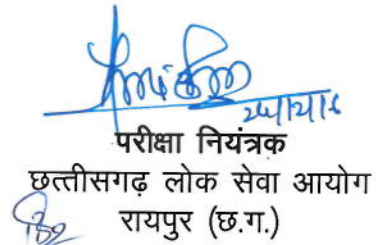 परीक्षा नियंत्रक
छत्तीसगढ़ लोक सेवा आयोग
रायपुर (छ.ग.)